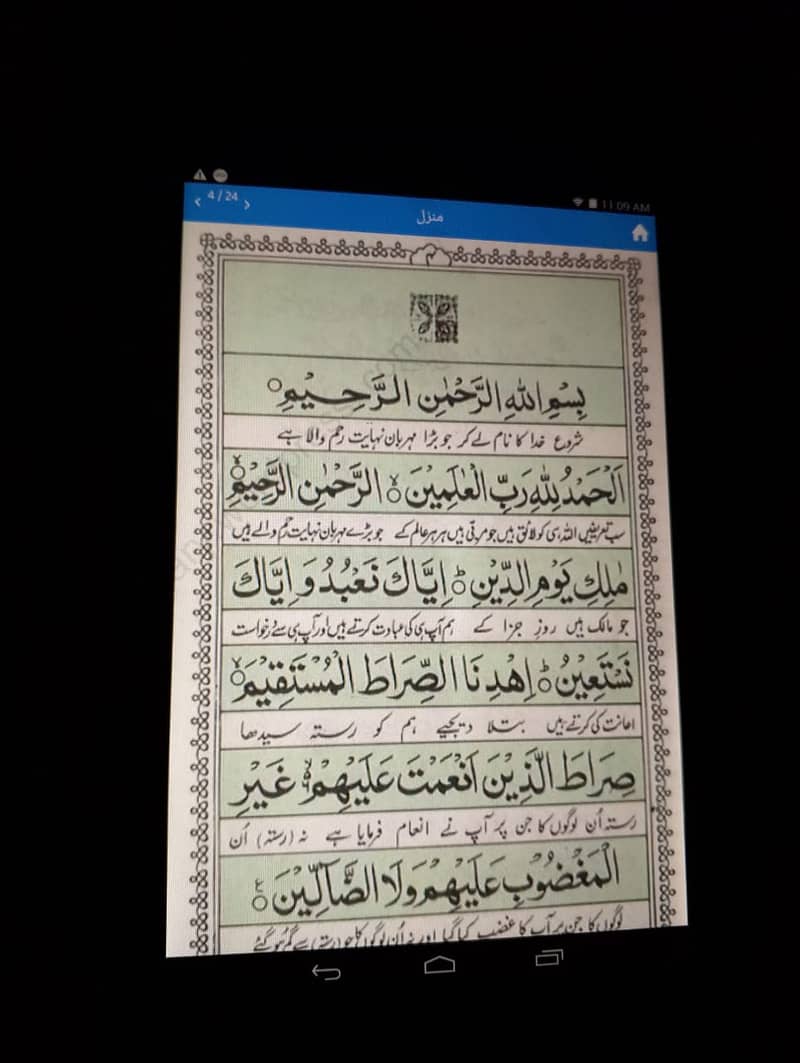 4 / 24
11:09 AM
منزل
۴
بِسْمِ اللهِ الرَّحْمٰنِ الرَّحِيْمِ
شروع خدا کا نام لے کر جو بڑا مہربان نہایت رحم والا ہے
اَلْحَمْدُ لِلّٰهِ رَبِّ الْعٰلَمِيْنَ ۙ الرَّحْمٰنِ الرَّحِيْمِ ۙ
سب تعریفیں اللہ ہی کو لائق ہیں جو مربّی ہیں ہر ہر عالم کے جو بڑے مہربان نہایت رحم والے ہیں
مٰلِكِ يَوْمِ الدِّيْنِ ؕ اِيَّاكَ نَعْبُدُ وَ اِيَّاكَ
جو مالک ہیں روزِ جزا کے ہم آپ ہی کی عبادت کرتے ہیں اور آپ ہی سے درخواست
نَسْتَعِيْنُ ؕ اِهْدِنَا الصِّرَاطَ الْمُسْتَقِيْمَ ۙ
اعانت کی کرتے ہیں بتلا دیجیے ہم کو رستہ سیدھا
صِرَاطَ الَّذِيْنَ اَنْعَمْتَ عَلَيْهِمْ ۙ غَيْرِ
رستہ اُن لوگوں کا جن پر آپ نے انعام فرمایا ہے نہ (رستہ) اُن
الْمَغْضُوْبِ عَلَيْهِمْ وَلَا الضَّآلِّيْنَ
لوگوں کا جن پر آپ کا غضب کیا گیا اور نہ اُن لوگوں کا جو (رستہ) سے گم ہو گئے